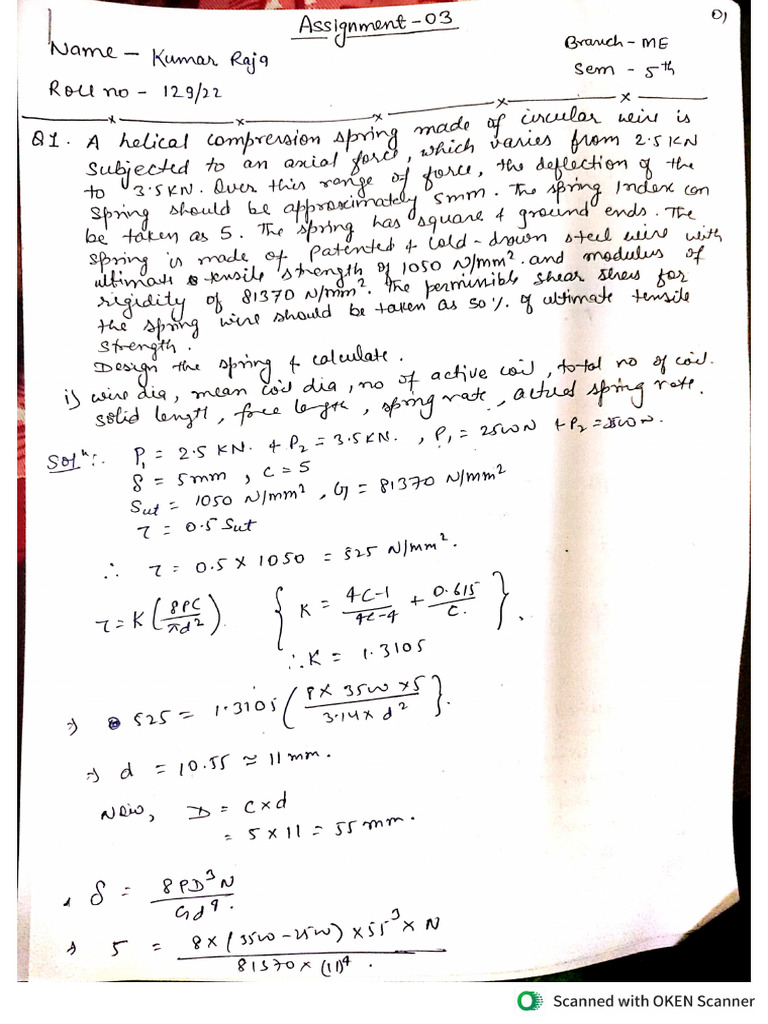 Assignment-03
01
Name - Kumar Raja
Branch - ME
Roll no - 129/22
Sem - 5th
Q1. A helical compression spring made of circular wire is
subjected to an axial force, which varies from 2.5 KN
to 3.5KN. Over this range of force, the deflection of the
spring should be approximately 5mm. The spring Index can
be taken as 5. The spring has square & ground ends. The
spring is made of Patented & Cold-drown steel wire with
ultimate tensile strength of 1050 N/mm². and modulus of
rigidity of 81370 N/mm². The permissible shear stress for
the spring wire should be taken as 50%. of ultimate tensile
strength.
Design the spring & calculate.
i) wire dia, mean coil dia, no of active coil, total no of coil.
solid length, free length, spring rate, actual spring rate.
Solⁿ:. P₁ = 2.5 KN. & P₂ = 3.5KN. , P₁ = 2500N & P₂ = 3500N.
δ = 5mm, C = 5
Sut = 1050 N/mm², G = 81370 N/mm²
τ = 0.5 Sut
∴ τ = 0.5 X 1050 = 525 N/mm².
τ = K (8PC/πd²). { K = 4C-1/4C-4 + 0.615/C. },
∴ K = 1.3105
⇒ 525 = 1.3105 ( 8 X 3500 X5 / 3.14X d² }.
⇒ d = 10.55 ≈ 11mm.
Now, D = C x d
= 5 X 11 = 55 mm.
δ = 8PD³N / Gd⁴.
⇒ 5 = 8 X (3500 - 2500) X 55³ X N / 81370 X (11)⁴.
Scanned with OKEN Scanner